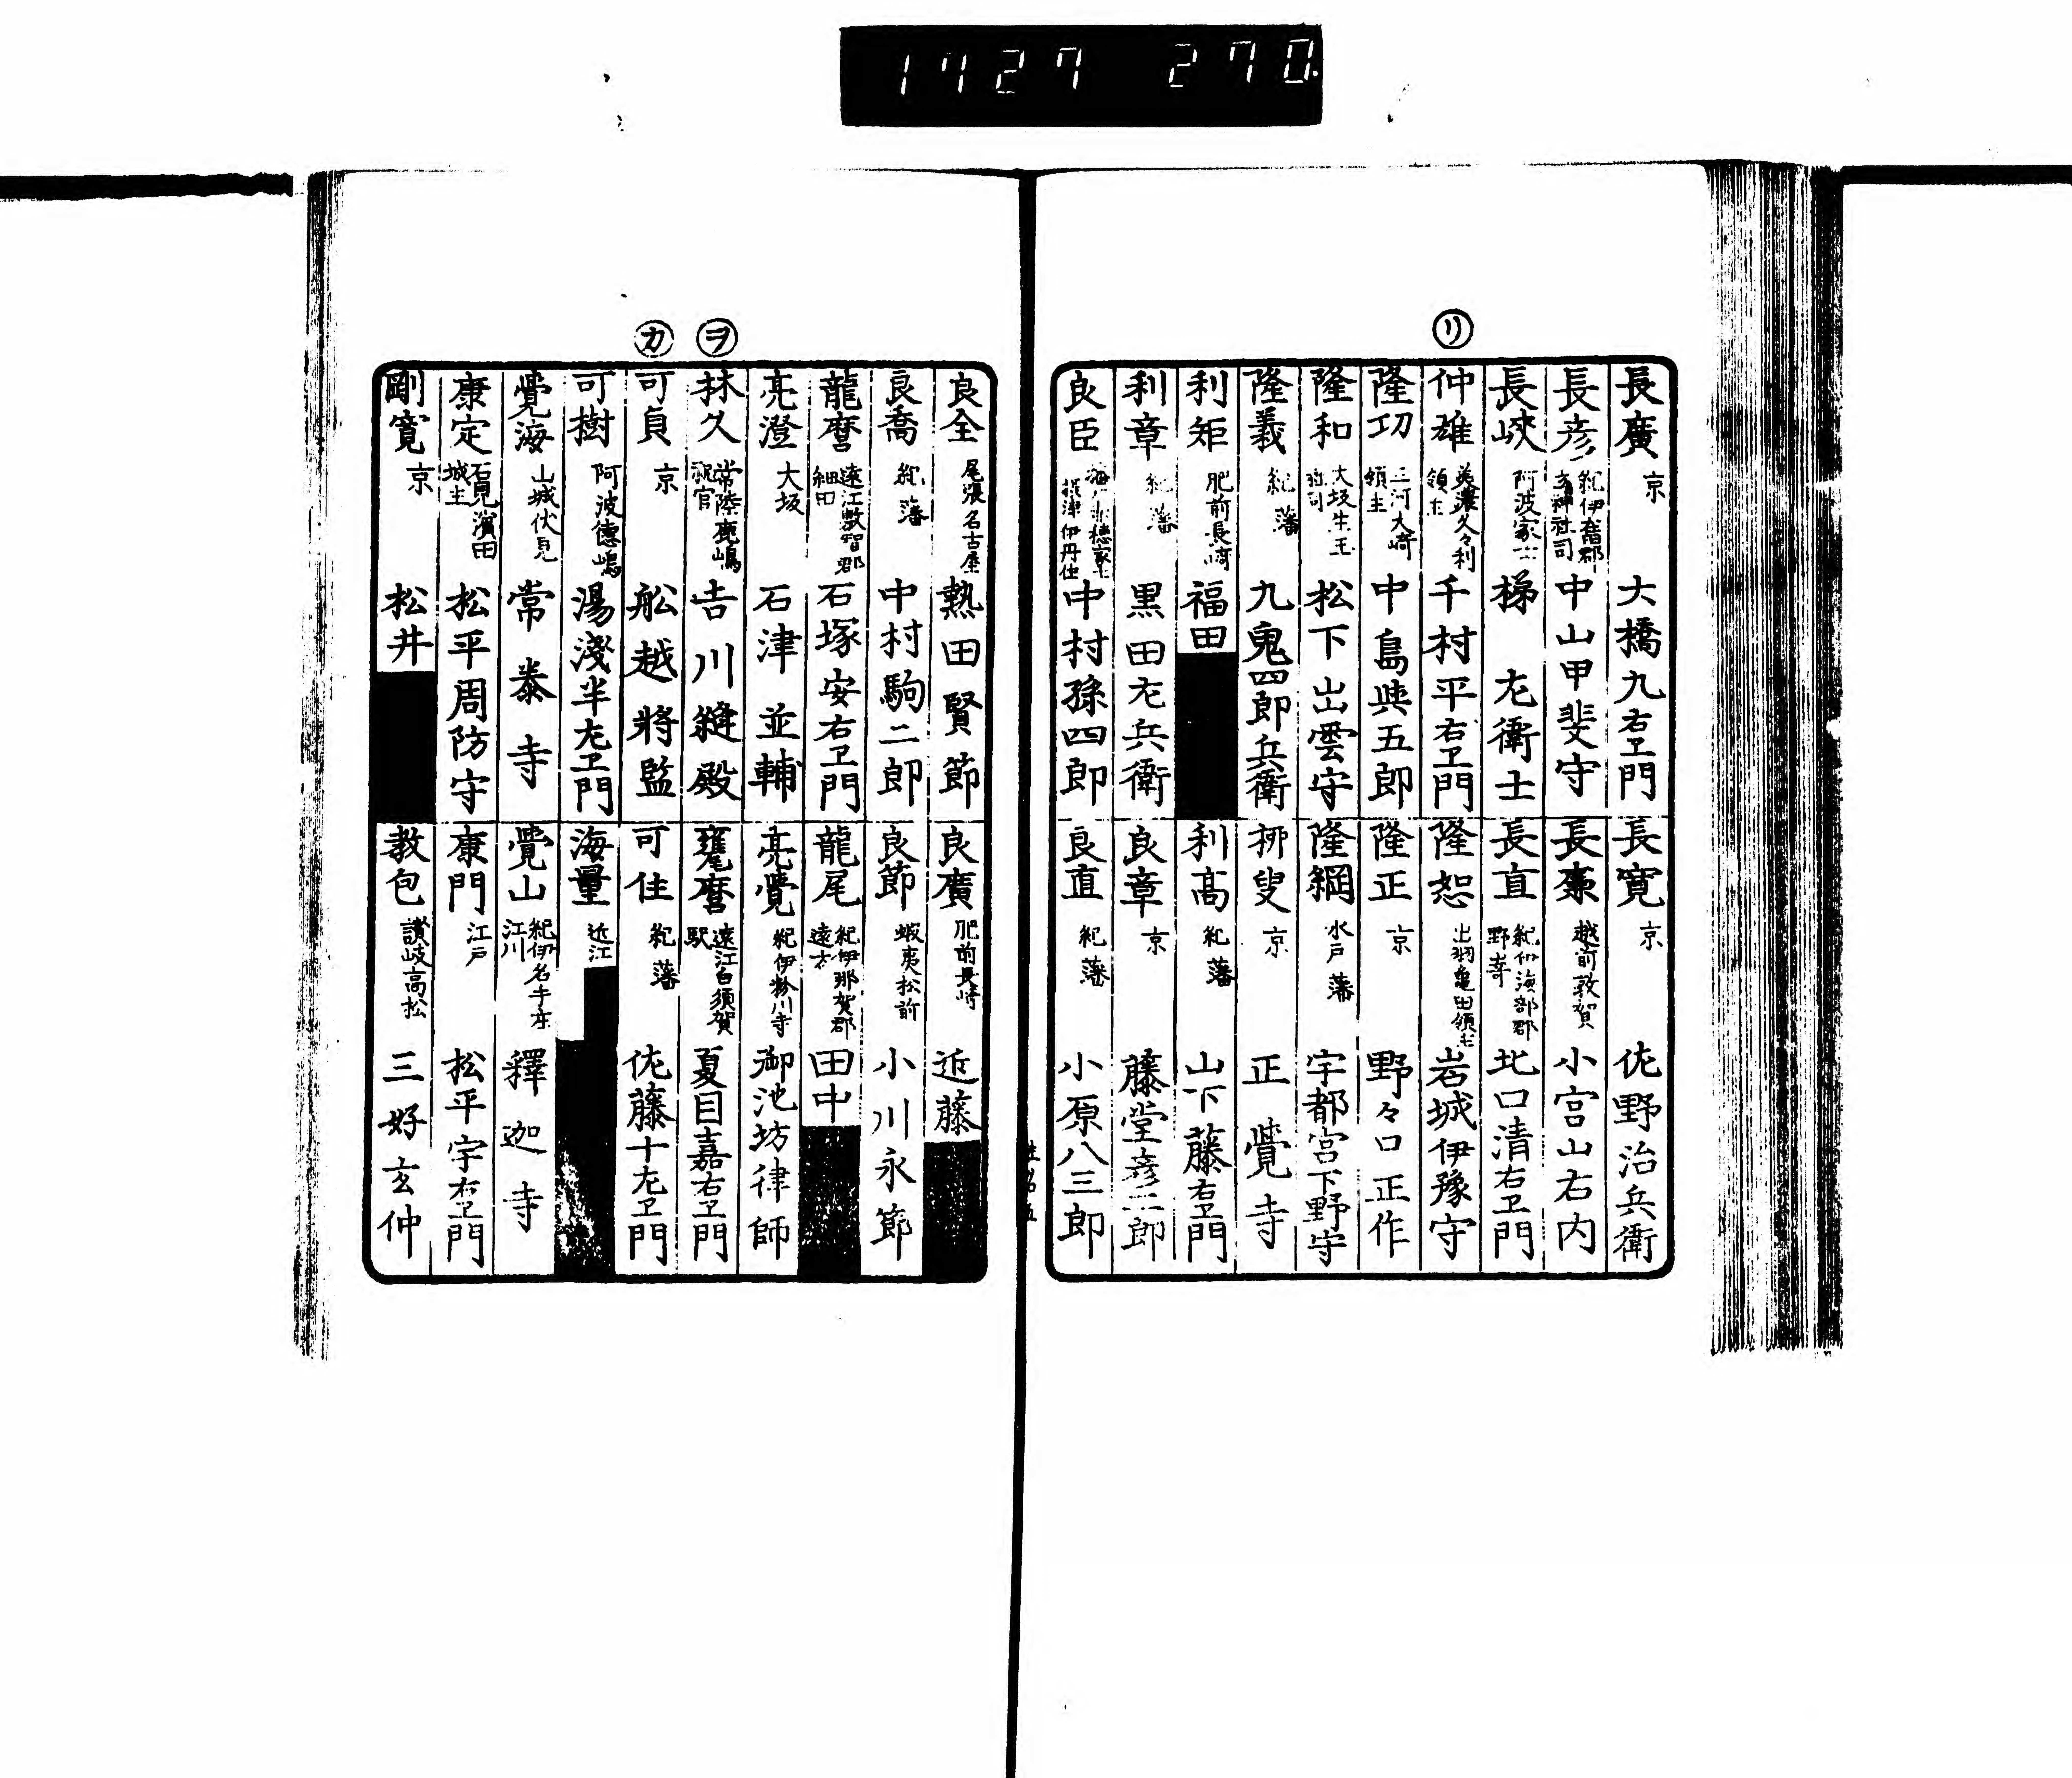 1727 270
リ
長廣 京 大橋九右ヱ門
長彦 紀伊 郡 神社司 中山甲斐守
長峽 阿波家士 梯 左衛士
仲雄 美濃久々利領主 千村平右ヱ門
隆功 三河大﨑領主 中島與五郎
隆和 大坂生玉社司 松下出雲守
隆義 紀藩 九鬼四郎兵衛
利矩 肥前長﨑 福田
利章 紀藩 黒田左兵衛
良臣 摂津伊丹住 中村孫四郎
長寛 京 佐野治兵衛
長棗 越前敦賀 小宮山右内
長直 紀伊海部郡野嵜 北口清右ヱ門
隆恕 出羽亀田領主 岩城伊豫守
隆正 京 野々口正作
隆綱 水戸藩 宇都宮下野守
栁叟 京 正覺寺
利高 紀藩 山下藤右ヱ門
良章 京 藤堂彦二郎
良直 紀藩 小原八三郎
ヲ
カ
良全 尾張名古屋 熱田賢節
良喬 紀藩 中村駒二郎
龍麿 遠江敷智郡細田 石塚安右ヱ門
亮澄 大坂 石津並輔
林久 常陸鹿嶋祝官 吉川縫殿
可貞 京 舩越將監
可樹 阿波德嶋 湯淺半左ヱ門
覺海 山城伏見 常泰寺
康定 石見濱田城主 松平周防守
剛寛 京 松井
良廣 肥前長﨑 近藤
良節 蝦夷松前 小川永節
龍尾 紀伊那賀郡遠方 田中
亮覺 紀伊粉川寺 御池坊律師
甕麿 遠江白須賀駅 夏目嘉右ヱ門
可住 紀藩 佐藤十左ヱ門
海量 近江
覺山 紀伊名手庄江川 釋迦寺
康門 江戸 松平宇右ヱ門
教包 讃岐高松 三好玄仲